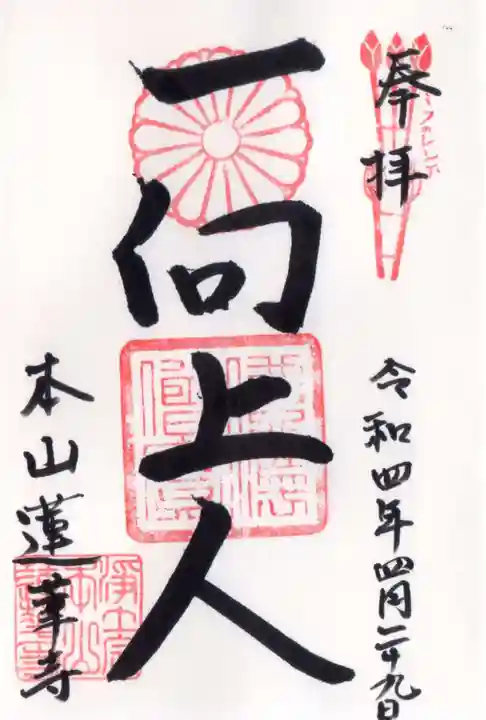 奉拝
令和四年四月二十九日
一向上人
本山蓮華寺